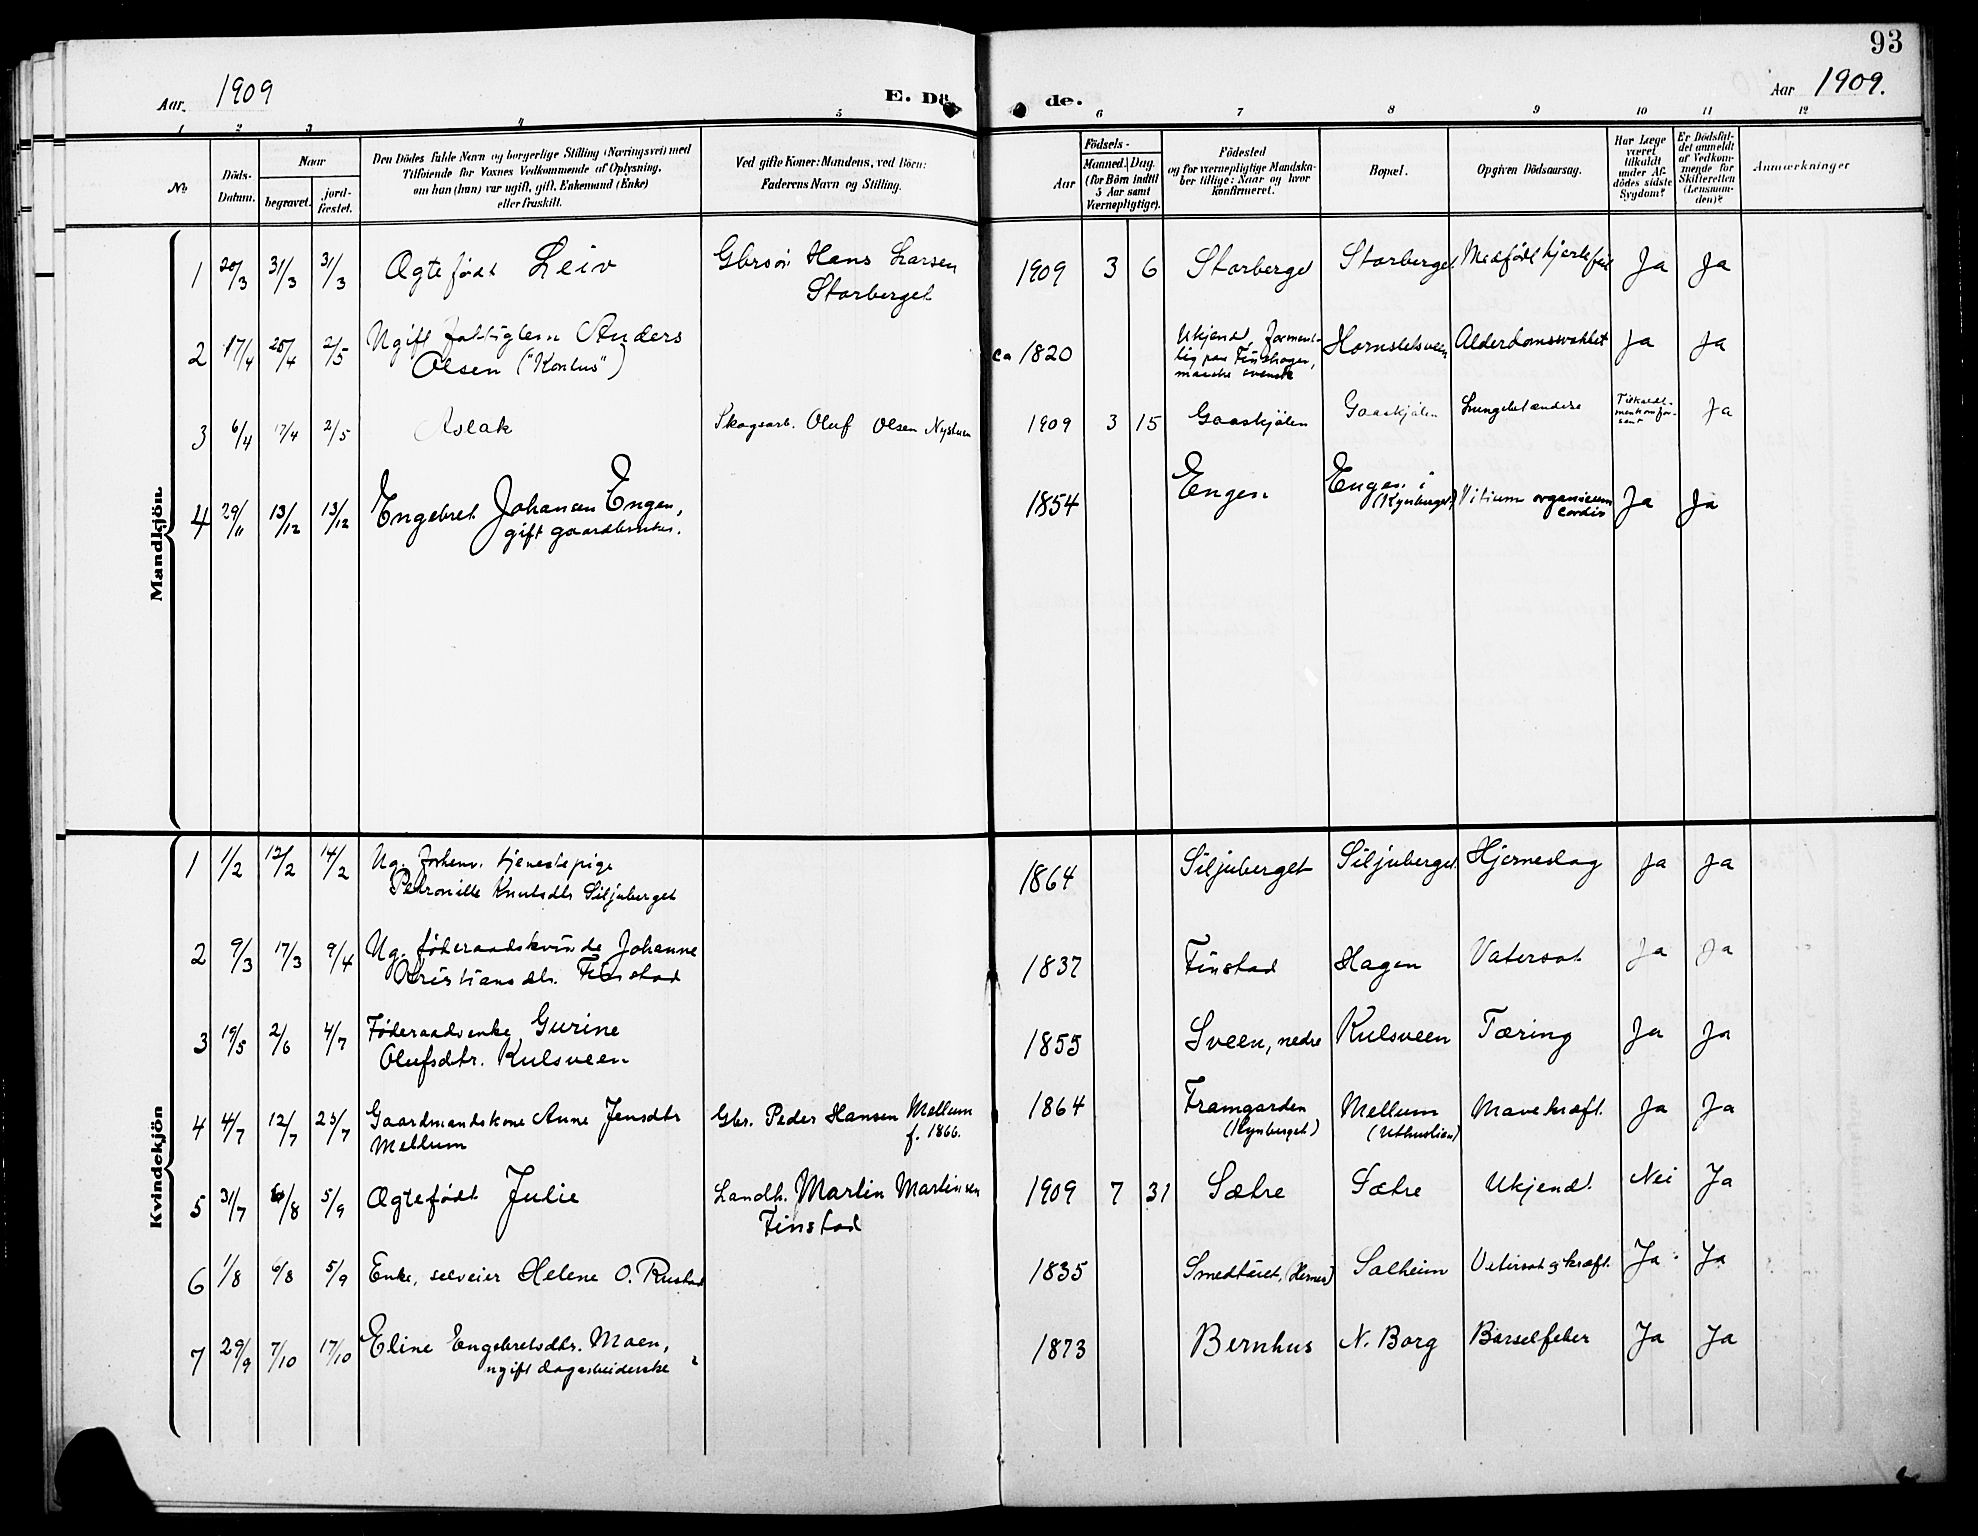 93
Aar. 1909
E. Dö
de.
Aar 1909.
1 2 3 4 5 6 7 8 9 10 11 12
No
Döds-
Datum.
Naar
begravet.
jord-
fæstet.
Den Dödes fulde Navn og borgerlige Stilling (Næringsvei) med
Tilföiende for Voxnes Vedkommende af Oplysning,
om han (hun) var ugift, gift, Enkemand (Enke)
eller fraskilt.
Ved gifte Koner: Mandens, ved Börn:
Faderens Navn og Stilling.
Aar
Födsels-
Maaned. Dag.
(for Börn indtil
5 Aar samt
Værnepligtige).
Födested
og for værnepligtige Mandska-
ber tillige: Naar og hvor
konfirmeret.
Bopæl.
Opgiven Dödsaarsag.
Har Læge
været
tilkaldt
under Af-
dödes sidste
Sygdom?
Er Dödsfal-
det anmeldt
af Vedkom-
mende for
Skifteretten
(Lensman-
den)?
Anmærkninger
Mandkjön.
1 20/3 31/3 31/3 Ægtefødt Leiv Gbrsøn Hans Larsen 1909 3 6 Storberget Storberget Medfødt hjertefeil Ja Ja
Storberget
2 17/4 25/4 2/5 Ugift fattiglem Anders ca 1820 Ukjendt, forment- Hornsletsveen Alderdomssvakhet Ja Ja
Olsen ("Kontus") lig paa Finskogen,
maaske svensk
3 6/4 17/4 2/5 Aslak Skogsarb. Oluf Olsen Nystuen 1909 3 15 Gaaskjølen Gaaskjølen Lungebetændelse Ja
4 29/11 13/12 13/12 Engebret Johansen Engen, 1854 Engen Engen i Vitium organicum Ja Ja
gift gaardbruker. (Kynberget) cordis
Kvindekjön
1 1/2 12/2 14/2 Ug. forhenv. tjenestepige 1864 Siljuberget Siljuberget Hjerneslag Ja Ja
Petronille Knutsdtr Siljuberget
2 9/3 17/3 9/4 Ug. føderaadskvinde Johanne 1837 Finstad Hagen Vatersot Ja Ja
Kristiansdtr. Finstad
3 19/5 2/6 4/7 Føderaadsenke Gurine 1855 Sveen, nedre Kulsveen Tæring Ja Ja
Olufsdtr. Kulsveen
4 4/7 12/7 25/7 Gaardmandskone Anne Jensdtr Gbr. Peder Hansen Mellum 1864 Framgarden Mellum Mavekræft. Ja Ja
Mellum f. 1866. (Kynberget) (Uthuslien)
5 31/7 6/8 5/9 Ægtefødt Julie Landh. Martin Martinsen 1909 7 31 Sætre Sætre Ukjendt. Nei Ja
Finstad
6 1/8 6/8 5/9 Enke, selveier Helene O. Rustad 1835 Smedtøret, (Hernes) Solheim Vatersot og kræft. Ja Ja
7 29/9 7/10 17/10 Eline Engebretsdtr. Moen, 1873 Bernhus N. Borg Barselfeber Ja Ja
ugift dagarbeiderske